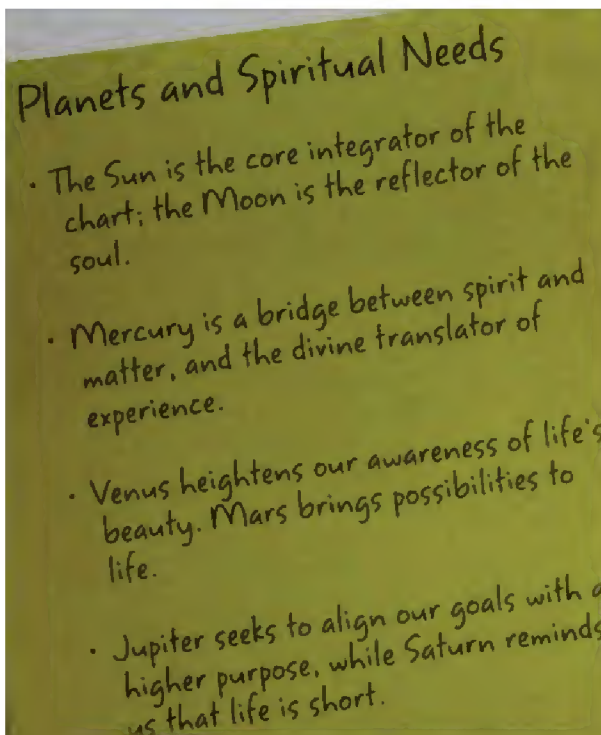 Planets and Spiritual Needs
· The Sun is the core integrator of the
chart; the Moon is the reflector of the
soul.
· Mercury is a bridge between spirit and
matter, and the divine translator of
experience.
· Venus heightens our awareness of life's
beauty. Mars brings possibilities to
life.
· Jupiter seeks to align our goals with a
higher purpose, while Saturn reminds
us that life is short.